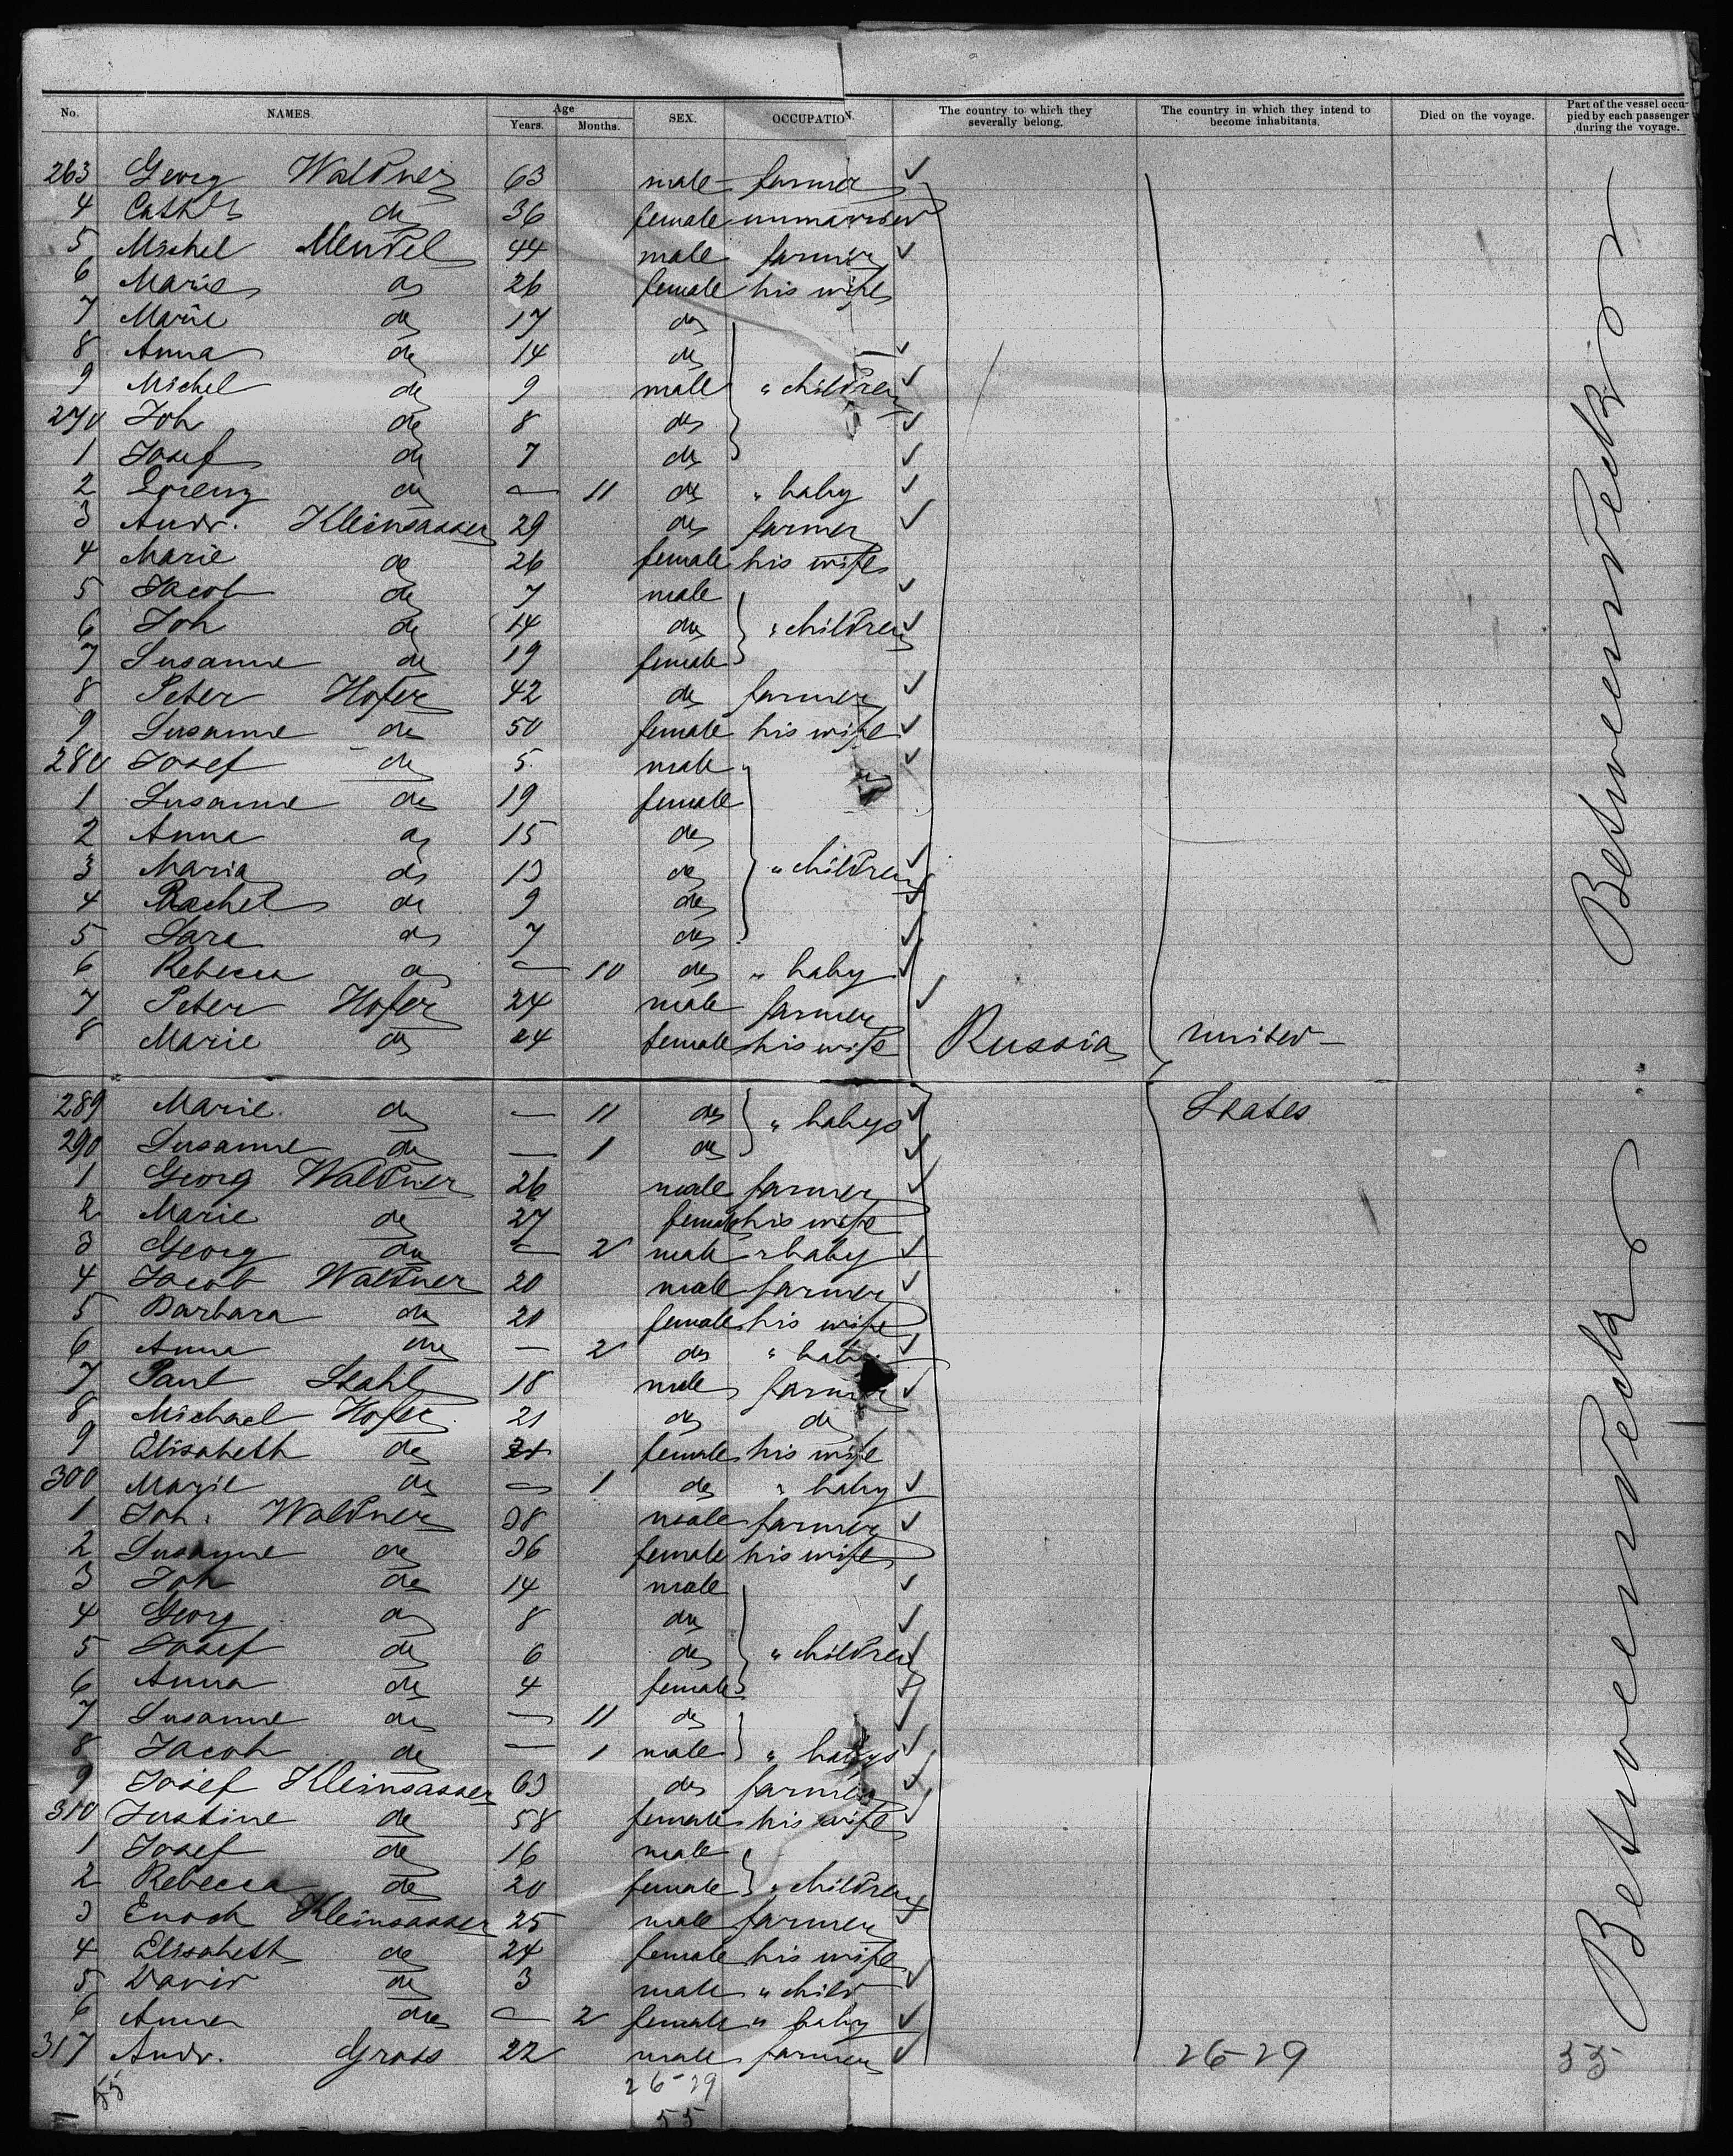 No. NAMES. Age Years. Months. SEX. OCCUPATION. The country to which they severally belong. The country in which they intend to become inhabitants. Died on the voyage. Part of the vessel occupied by each passenger during the voyage.
263 Georg Waldner 63 male farmer
4 Cath do 36 female unmarried
5 Michel Mendel 44 male farmer
6 Marie do 26 female his wife
7 Marie do 17 do
8 Anna do 14 do
9 Michel do 9 male " children
270 Joh do 8 do
1 Josef do 7 do
2 Lorenz do — 11 do " baby
3 Andr. Kleinsasser 29 do farmer
4 Marie do 26 female his wife
5 Jacob do 7 male
6 Joh do 14 do " children
7 Susanne do 19 female
8 Peter Hofer 42 do farmer
9 Susanne do 50 female his wife
280 Josef do 5 male "
1 Susanne do 19 female
2 Anna do 15 do
3 Maria do 13 do " children
4 Rachel do 9 do
5 Sara do 7 do
6 Rebecca do — 10 do " baby
7 Peter Hofer 24 male farmer
8 Marie do 24 female his wife Russia united
289 Marie do — 11 do " babys States
290 Susanne do — 1 do
1 Georg Waldner 26 male farmer
2 Marie do 27 female his wife
3 Georg do — 2 male " baby
4 Jacob Waldner 20 male farmer
5 Barbara do 20 female his wife
6 Anna do — 2 do " baby
7 Paul Stahl 18 male farmer
8 Michael Hofer 21 do do
9 Elisabeth do 21 female his wife
300 Marie do — 1 do " baby
1 Joh. Waldner 38 male farmer
2 Susanne do 36 female his wife
3 Joh do 14 male
4 Georg do 8 do
5 Josef do 6 do " children
6 Anna do 4 female
7 Susanne do — 11 do
8 Jacob do — 1 male " babys
9 Josef Kleinsasser 63 do farmer
310 Justine do 58 female his wife
1 Josef do 16 male
2 Rebecca do 20 female " children
3 Enoch Kleinsasser 25 male farmer
4 Elisabeth do 24 female his wife
5 David do 3 male " child
6 Anna do — 2 female " baby
317 Andr. Gross 22 male farmer 26-29 55
55 26-29
55
Betweendeck
Betweendeck